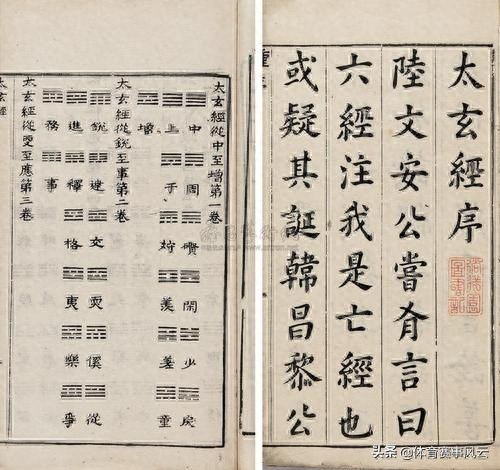 太玄經序
陸文安公嘗有言曰
六經注我是亡經也
或疑其誕韓昌黎公
太玄經從中至增第一卷
中周礥閑少戾
上干狩羨差童
增
太玄經從銳至事第二卷
銳達交耎傒從
進釋格夷樂爭
務事
太玄經從更至應第三卷
太玄經
头条 @体育赛事风云